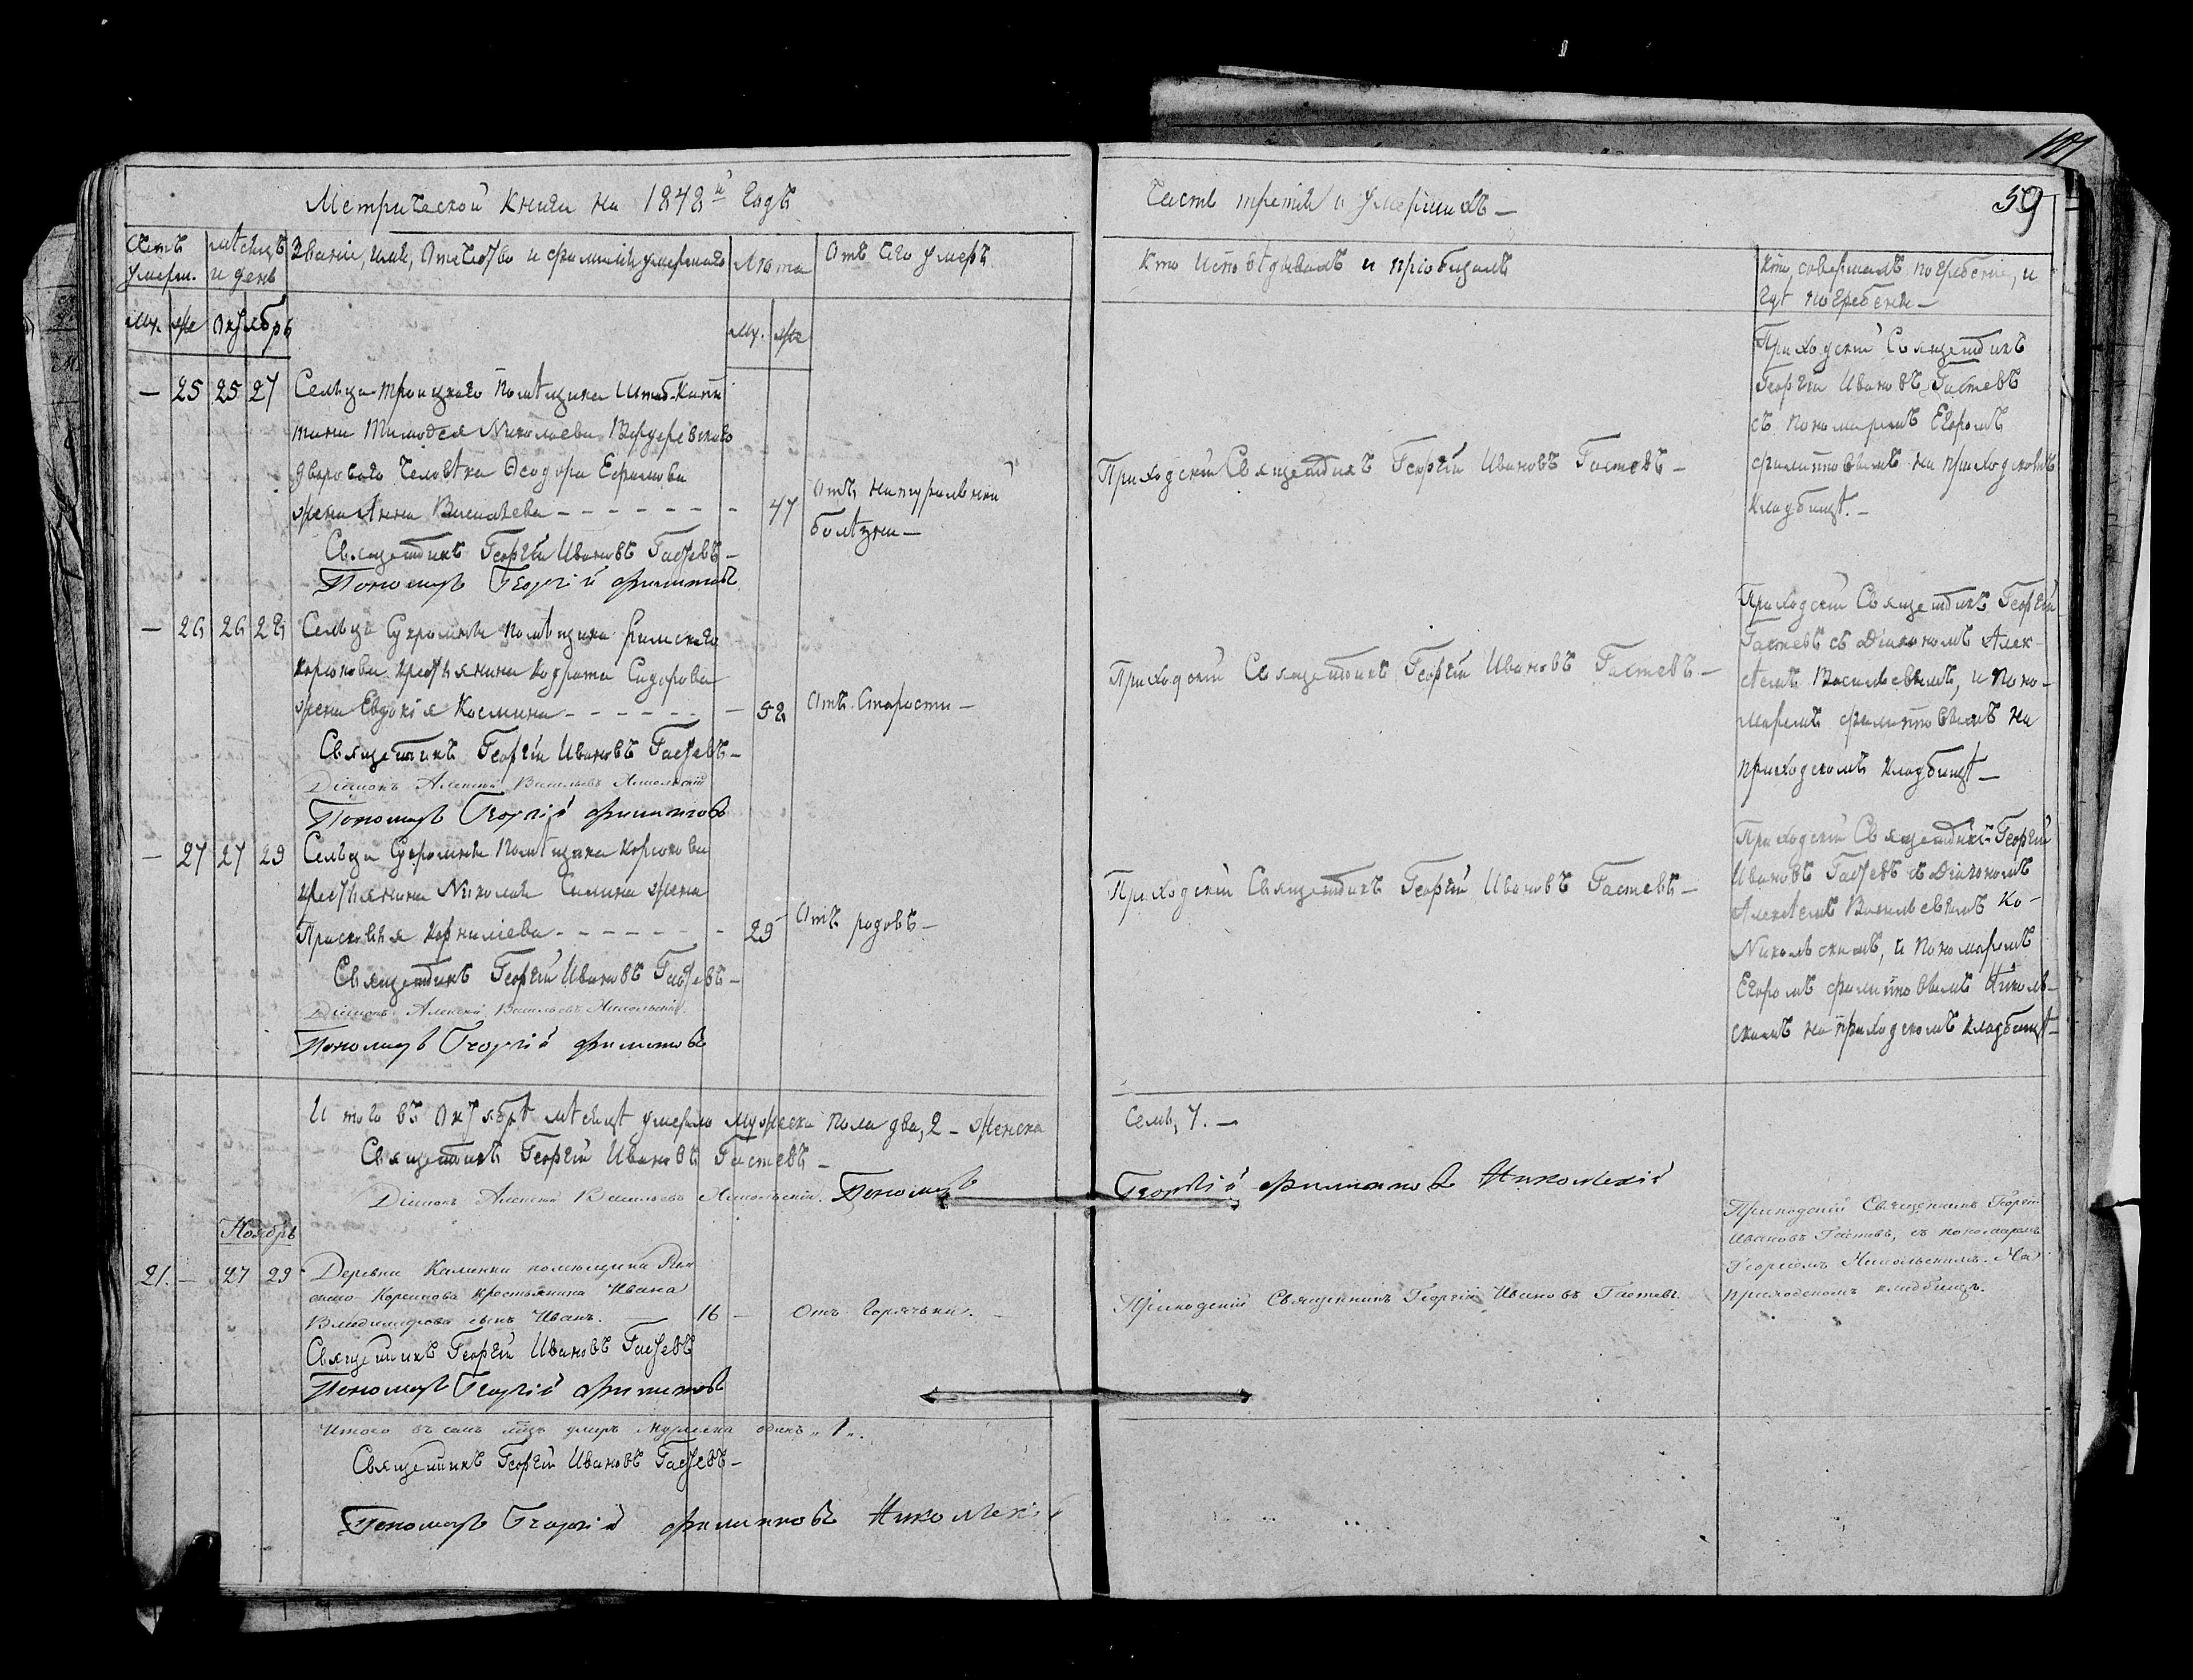 Метрической Книги на 1848й годъ
Счетъ умерш.
мѣсяцъ и день
Званіе, имя, Отчество и фамилія умершаго
Лѣта
Отъ чего умеръ
Му. же Октябрь
Му. же
— 25 25 27 Сельца Троицкаго Помѣщика Штаб-Капи
тана Тимофея Николаева Вердеревскаго
двороваго человѣка Ѳеодора Ефимова
жена Анна Васильева - - - - - - - 47
Отъ натуральной
болѣзни —
Священникъ Георгій Ивановъ Гастевъ —
Пономарь Георгій Филиповъ
— 26 26 28 Сельца Сухромна Помѣщика Римскаго
Корсакова крестьянина Кодрата Сидорова
жена Евдокія Космина - - - - - - 52 Отъ Старости —
Священникъ Георгій Ивановъ Гастевъ —
Діаконъ Алексѣй Васильевъ Никольскій
Пономарь Георгій Филиповъ
— 27 27 29 Сельца Сухромна Помѣщика Корсакова
крестьянина Николая Силина жена
Прасковья Корнилієва - - - - - - - 29 Отъ родовъ —
Священникъ Георгій Ивановъ Гастевъ —
Діаконъ Алексѣй Васильевъ Никольскій.
Пономарь Георгій Филиповъ
И того въ Октябрѣ мѣсяцѣ умерло Мужеска пола два, 2 — женска
Священникъ Георгій Ивановъ Гастевъ —
Діаконъ Алексѣй Васильевъ Никольскій. Пономарь
Ноябрь
21. — 27 29 Деревни Каменки помещика Рим
скаго-Корсакова крестьянина Ивана
Владимирова сынъ Иванъ. 16 — Отъ горячьки. —
Священникъ Георгій Ивановъ Гастевъ
Пономарь Георгій Филиповъ
Итого въ семъ мѣсяцѣ умеръ мужеска одинъ „1„.
Священникъ Георгій Ивановъ Гастевъ —
Пономарь Георгій Филиповъ Никольскій
101
59
Часть третія о Умершихъ —
Кто Исповѣдывалъ и пріобщалъ
Кто совершалъ погребеніе, и
гдѣ погребены —
Приходскій Священникъ Георгій Ивановъ Гастевъ —
Приходскій Священникъ
Георгій Ивановъ Гастевъ
съ пономаремъ Егоромъ
Филиповымъ на приходскомъ
Кладбищѣ. —
Приходскій Священникъ Георгій Ивановъ Гастевъ —
Приходскій Священникъ Георгій
Гастевъ съ Діакономъ Алек-
сѣемъ Васильевымъ, и Поно-
маремъ Филиповымъ на
приходскомъ кладбищѣ —
Приходскій Священникъ Георгій Ивановъ Гастевъ —
Приходскій Священникъ Георгій
Ивановъ Гастевъ съ Діакономъ
Алексѣемъ Васильевымъ Ко-
Никольскимъ, и Пономаремъ
Егоромъ Филиповымъ Николь-
скимъ на приходскомъ кладбищѣ —
Семь, 7. —
Георгій Филиповъ Никольскій
Приходскій Священникъ Георгій Ивановъ Гастевъ.
Приходскій Священникъ Георгій
Ивановъ Гастевъ, съ пономаремъ
Георгіемъ Никольскимъ. На
приходскомъ кладбищѣ.